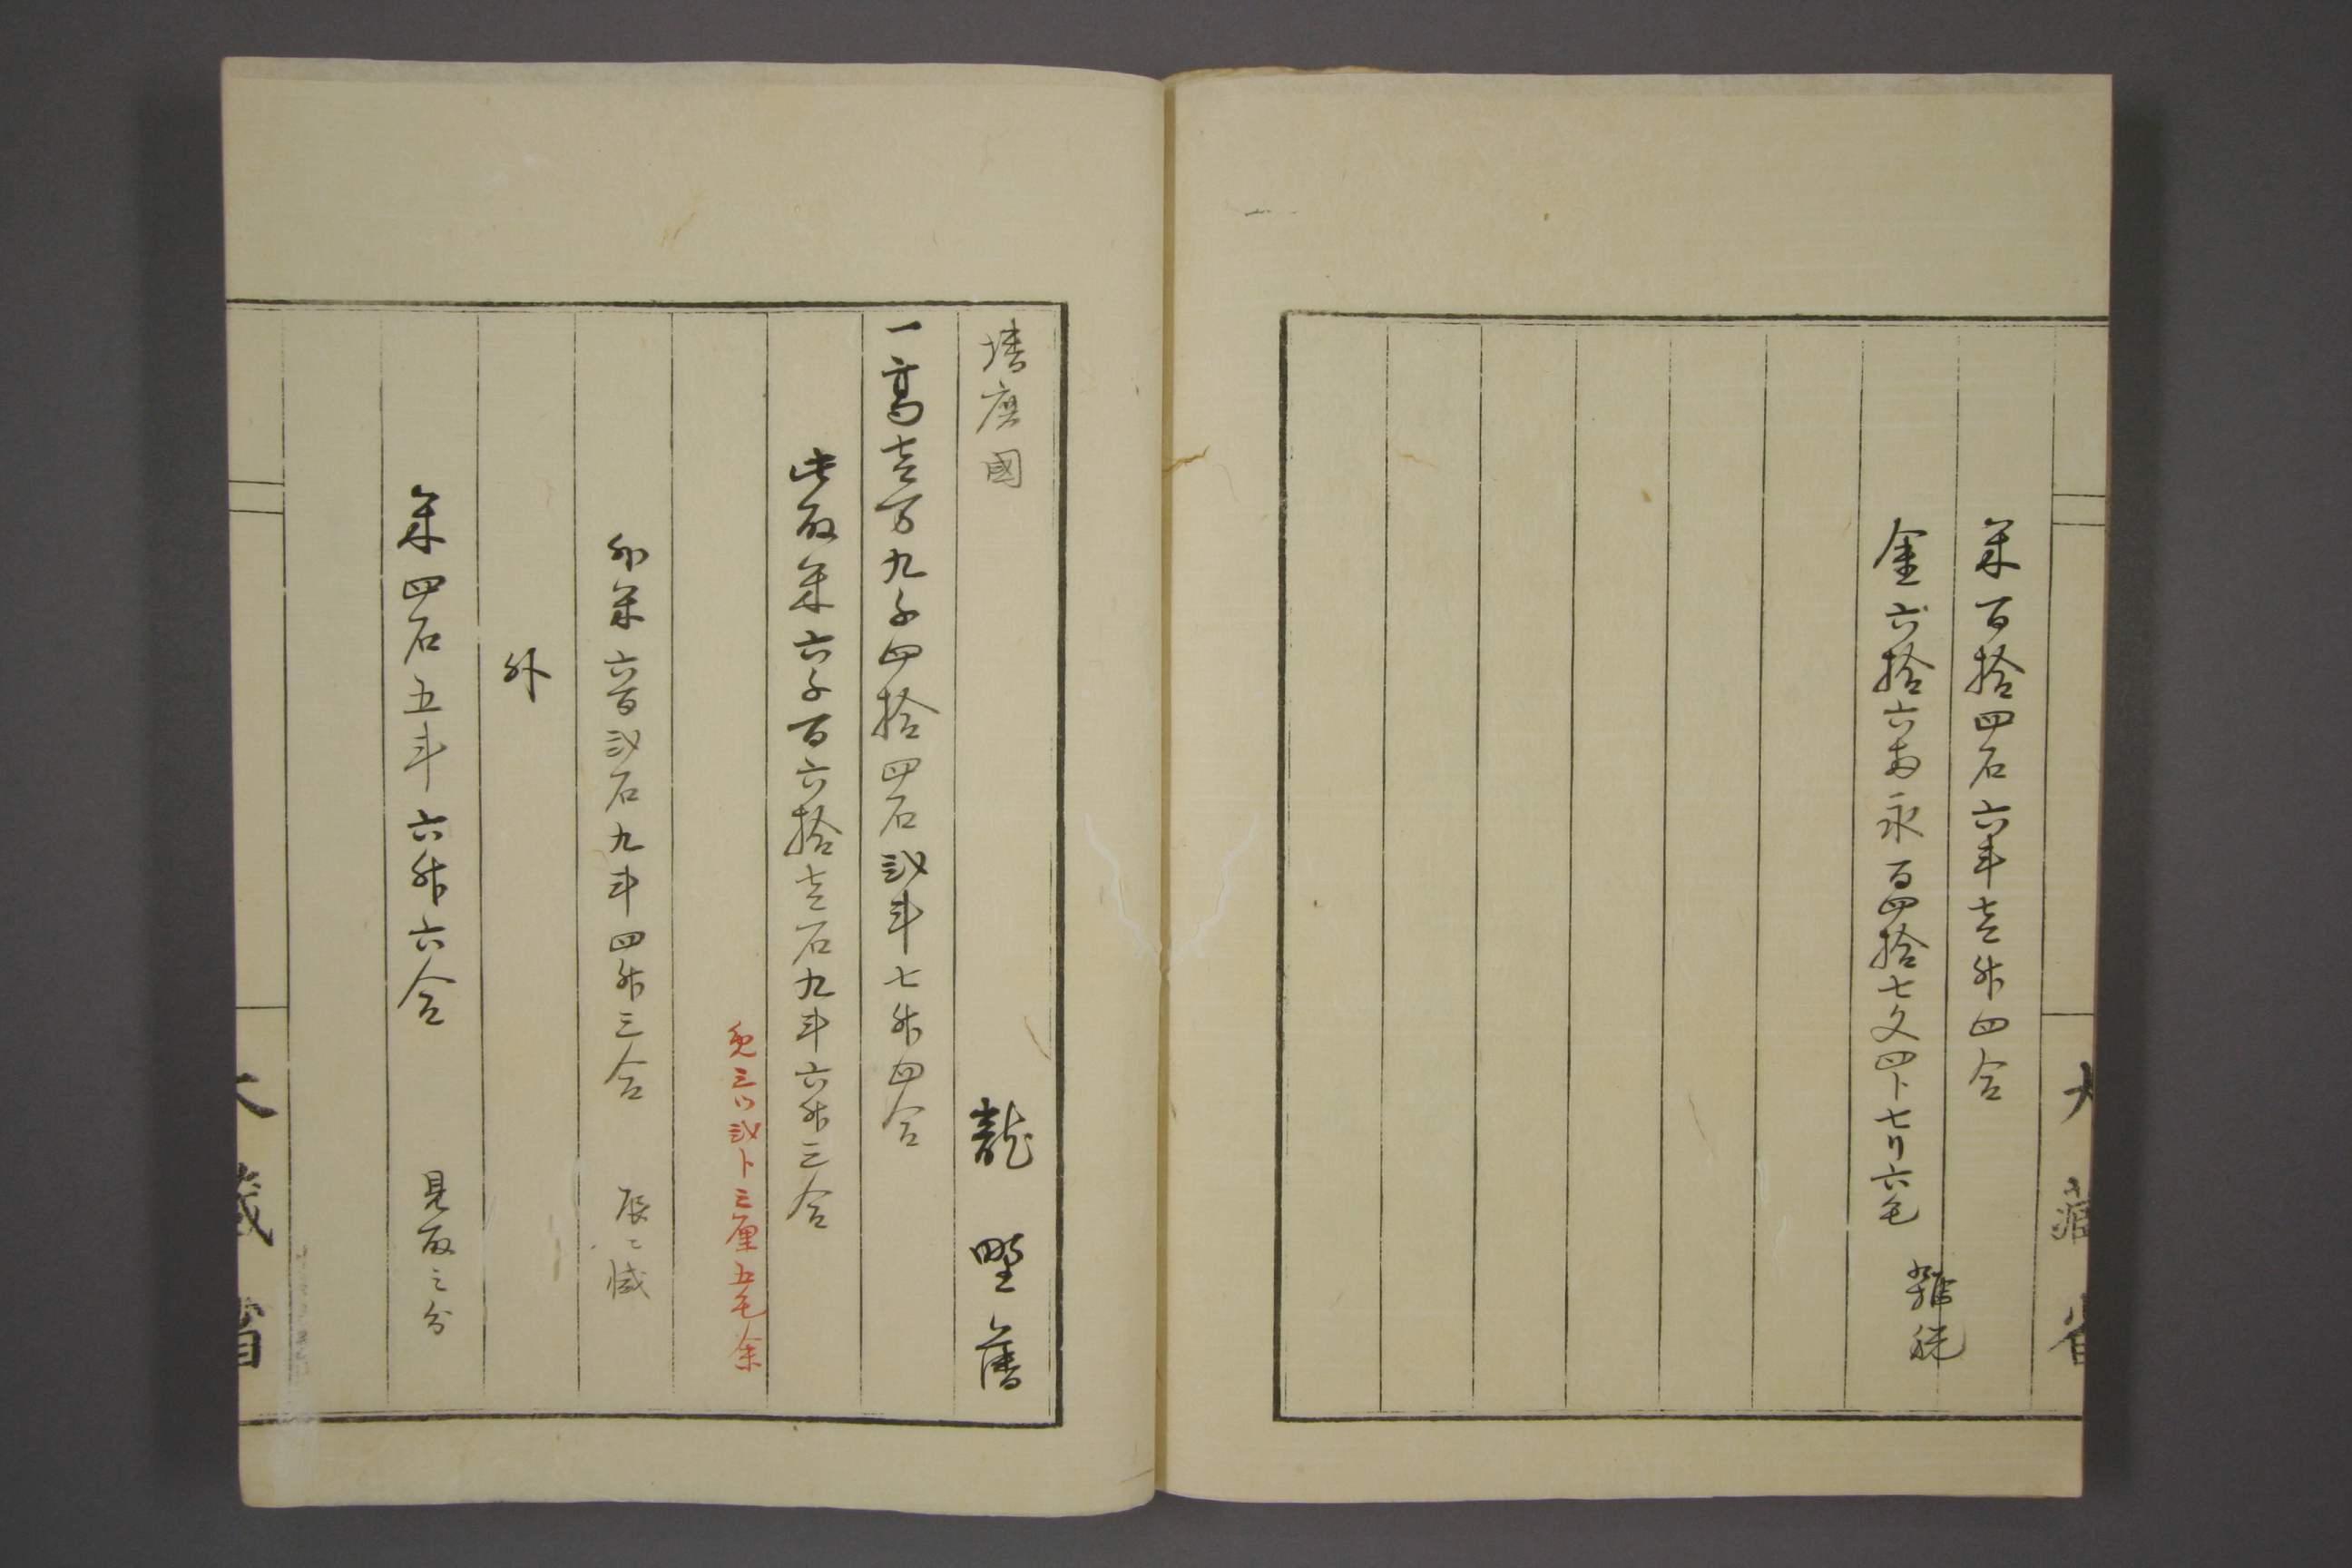 米百拾四石六斗壱升四合
金六拾六両永百四拾七文四卜七リ六毛
雑税
大藏省
播磨國
龍野舊
一高壱万九千四拾四石弐斗七升四合
此取米六千百六拾壱石九斗六升三合
免三ツ弐卜三厘五毛余
外米六百弐石九斗四升三合 辰ニ減
外
米四石五斗六升六合 見取之分
大藏省